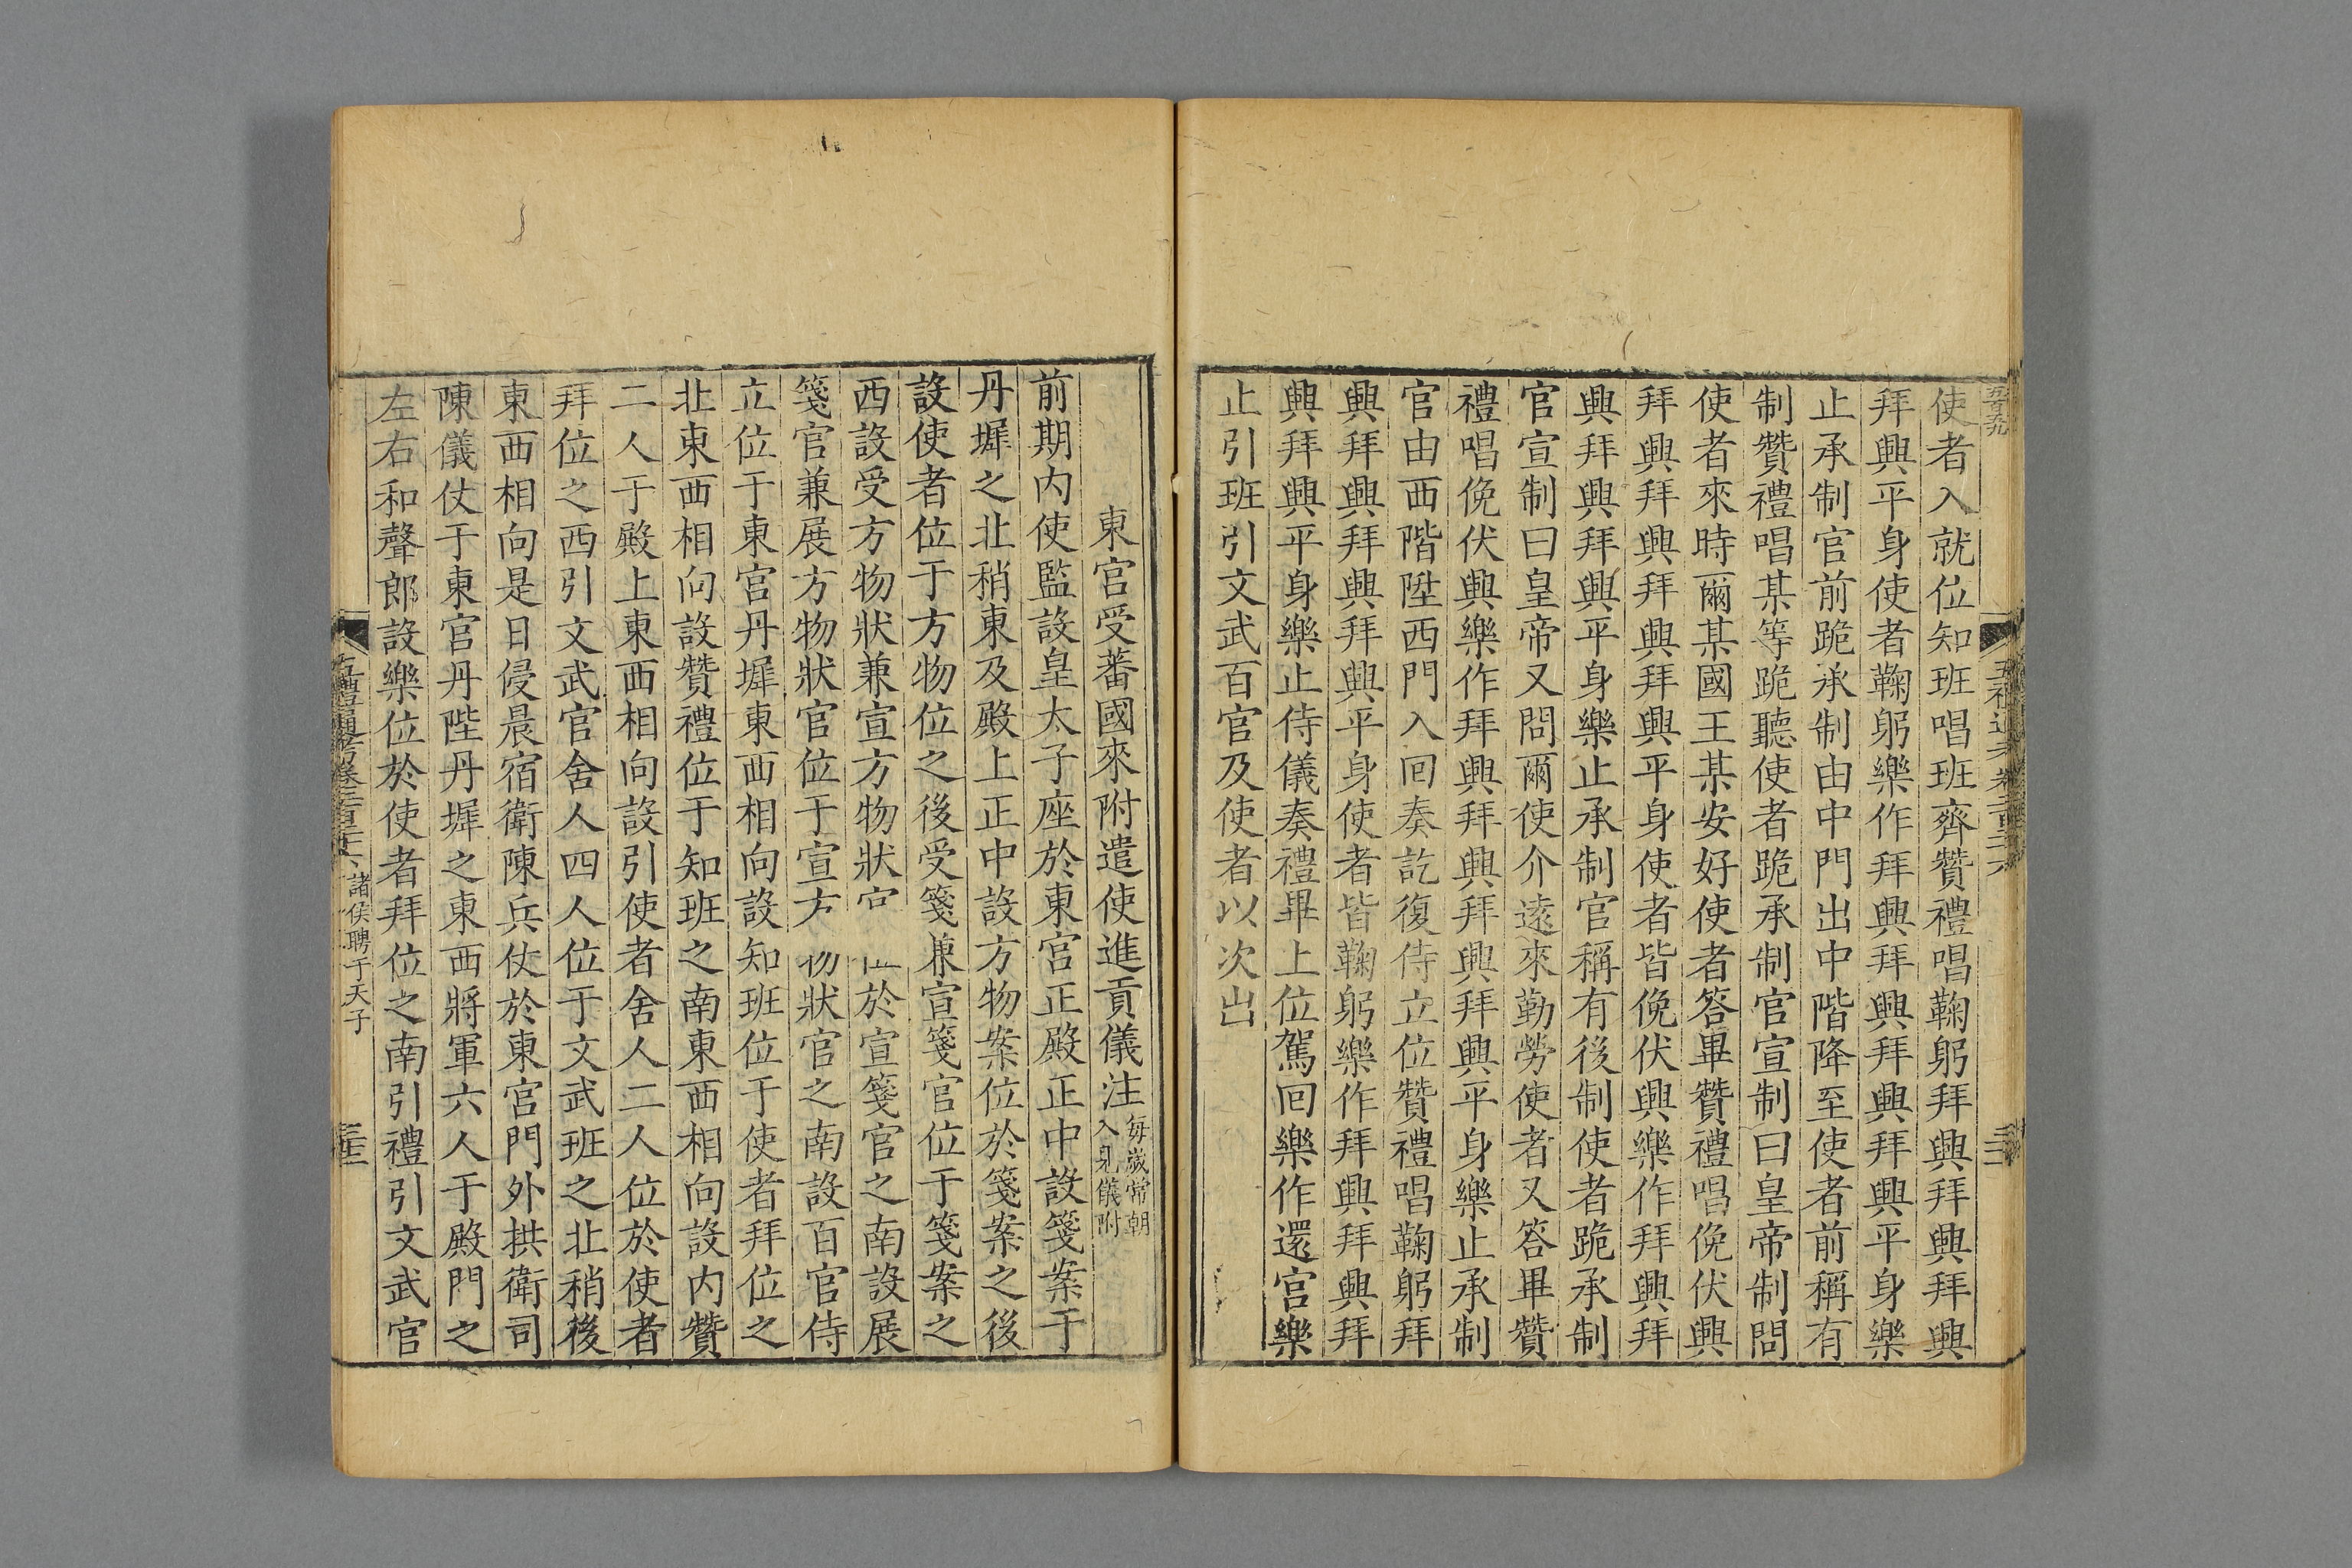 使者入就位知班唱班齊贊禮唱鞠躬拜興拜興拜興
拜興平身使者鞠躬樂作拜興拜興拜興拜興平身樂
止承制官前跪承制由中門出中階降至使者前稱有
制贊禮唱某等跪聽使者跪承制官宣制曰皇帝制問
使者來時爾某國王某安好使者答畢贊禮唱俛伏興
拜興拜興拜興拜興平身使者皆俛伏興樂作拜興拜
興拜興拜興平身樂止承制官稱有後制使者跪承制
官宣制曰皇帝又問爾使介遠來勤勞使者又答畢贊
禮唱俛伏興樂作拜興拜興拜興拜興平身樂止承制
官由西階陞西門入回奏訖復侍立位贊禮唱鞠躬拜
興拜興拜興拜興平身使者皆鞠躬樂作拜興拜興拜
興拜興平身樂止侍儀奏禮畢上位駕回樂作還宮樂
止引班引文武百官及使者以次出
東宮受蕃國來附遣使進貢儀注
每歲常朝
入見儀附
前期内使監設皇太子座於東宮正殿正中設箋案于
丹墀之北稍東及殿上正中設方物案位於箋案之後
設使者位于方物位之後受箋兼宣箋官位于箋案之
西設受方物狀兼宣方物狀官位於宣箋官之南設展
箋官兼展方物狀官位于宣方物狀官之南設百官侍
立位于東宮丹墀東西相向設知班位于使者拜位之
北東西相向設贊禮位于知班之南東西相向設内贊
二人于殿上東西相向設引使者舍人二人位於使者
拜位之西引文武官舍人四人位于文武班之北稍後
東西相向是日侵晨宿衛陳兵仗於東宮門外拱衛司
陳儀仗于東宮丹陛丹墀之東西將軍六人于殿門之
左右和聲郎設樂位於使者拜位之南引禮引文武官
諸侯聘于天子